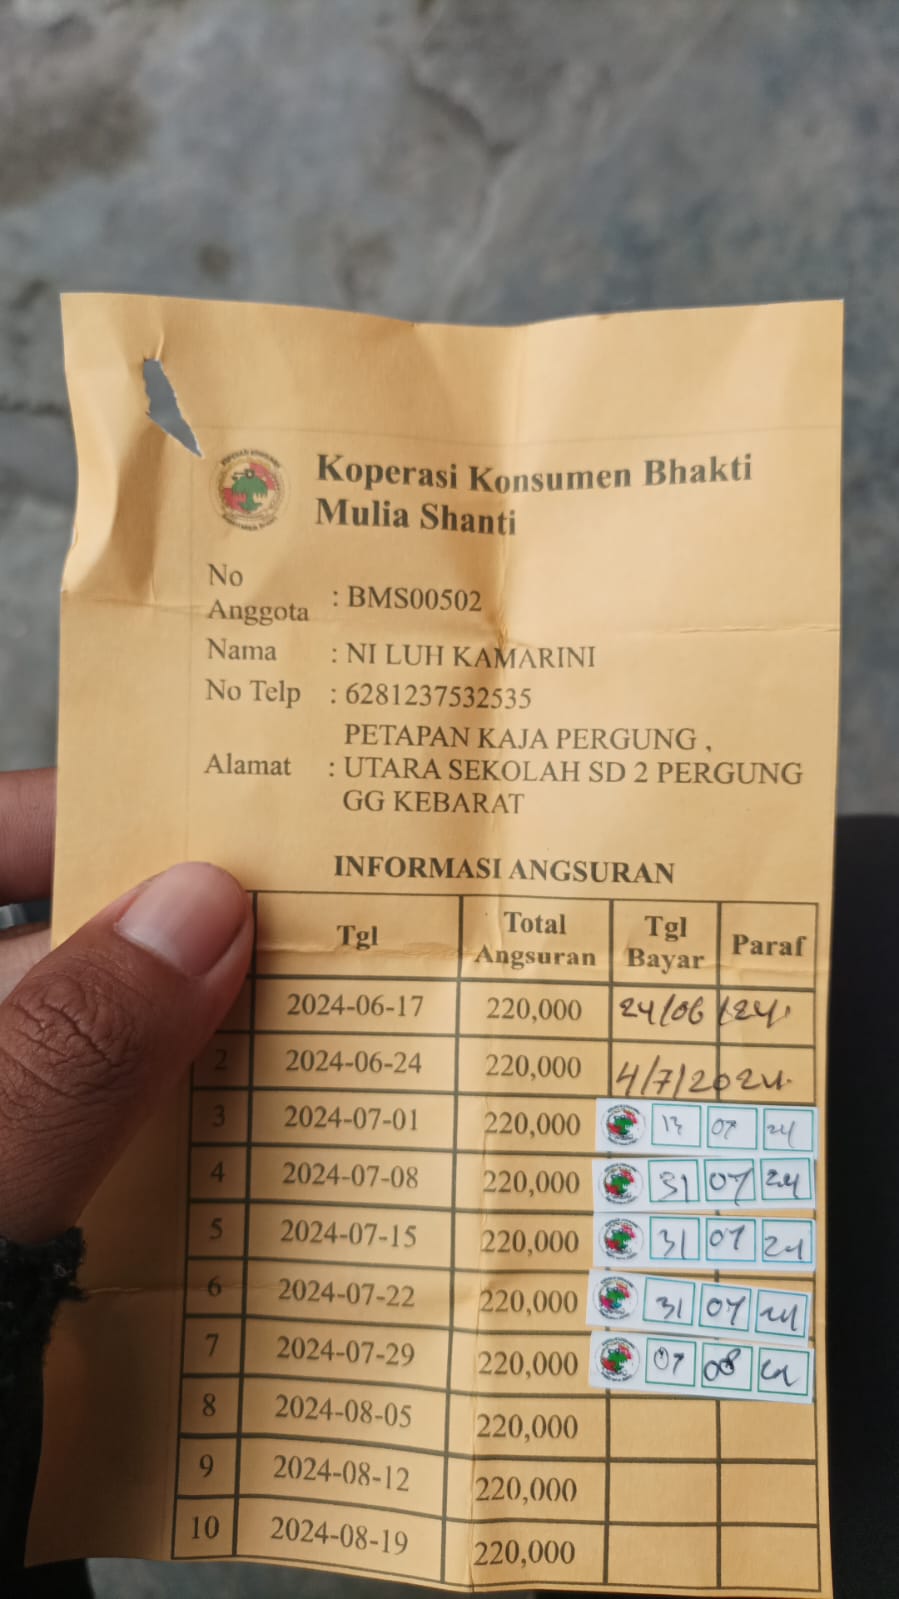 Koperasi Konsumen Bhakti
Mulia Shanti
No
Anggota : BMS00502
Nama : NI LUH KAMARINI
No Telp : 6281237532535
PETAPAN KAJA PERGUNG ,
Alamat : UTARA SEKOLAH SD 2 PERGUNG
GG KEBARAT
INFORMASI ANGSURAN
Tgl Total Angsuran Tgl Bayar Paraf
2024-06-17 220,000 24/06/24
2 2024-06-24 220,000 4/7/2024
3 2024-07-01 220,000 07 24
4 2024-07-08 220,000 31 07 24
5 2024-07-15 220,000 31 07 24
6 2024-07-22 220,000 31 07 24
7 2024-07-29 220,000 07 08 24
8 2024-08-05 220,000
9 2024-08-12 220,000
10 2024-08-19 220,000